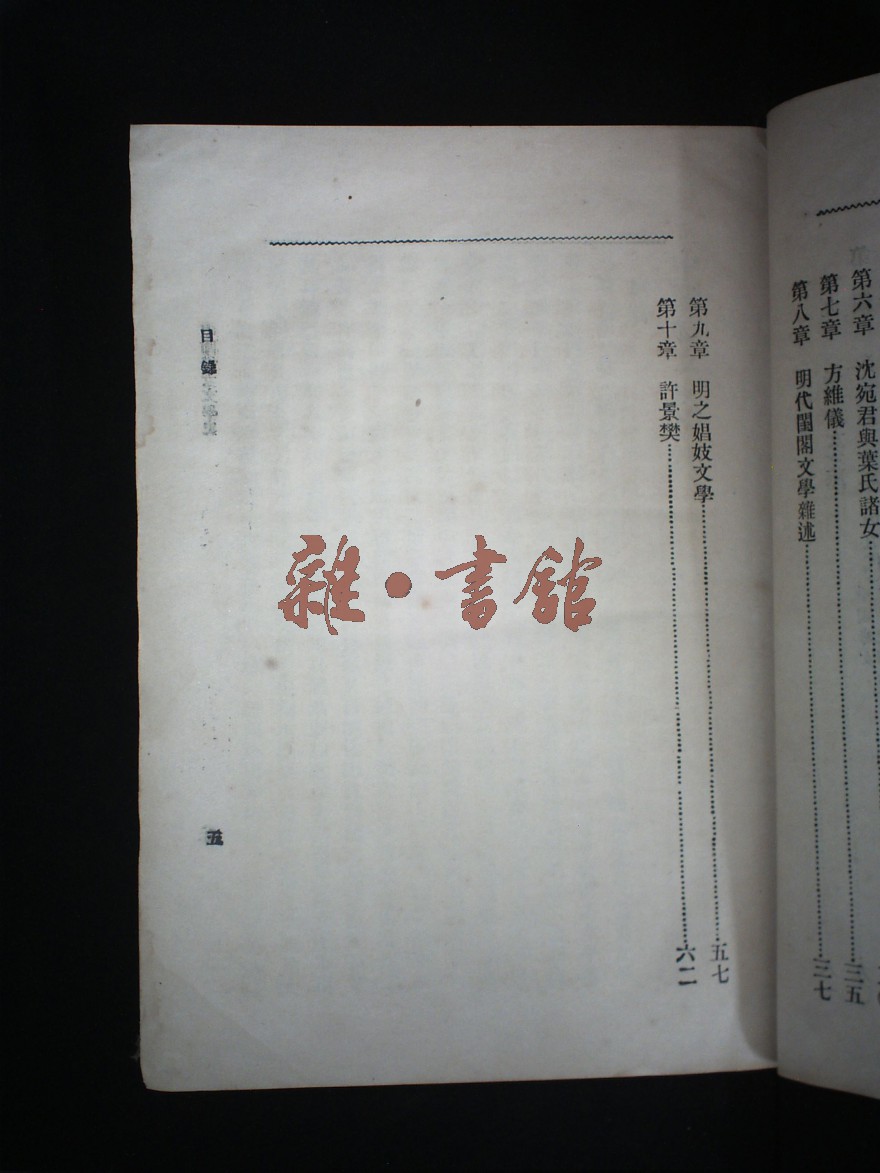 第六章　沈宛君與葉氏諸女
第七章　方維儀　三五
第八章　明代閨閣文學雜述　三七
第九章　明之娼妓文學　五七
第十章　許景樊　六二
目錄
五
雜·書館